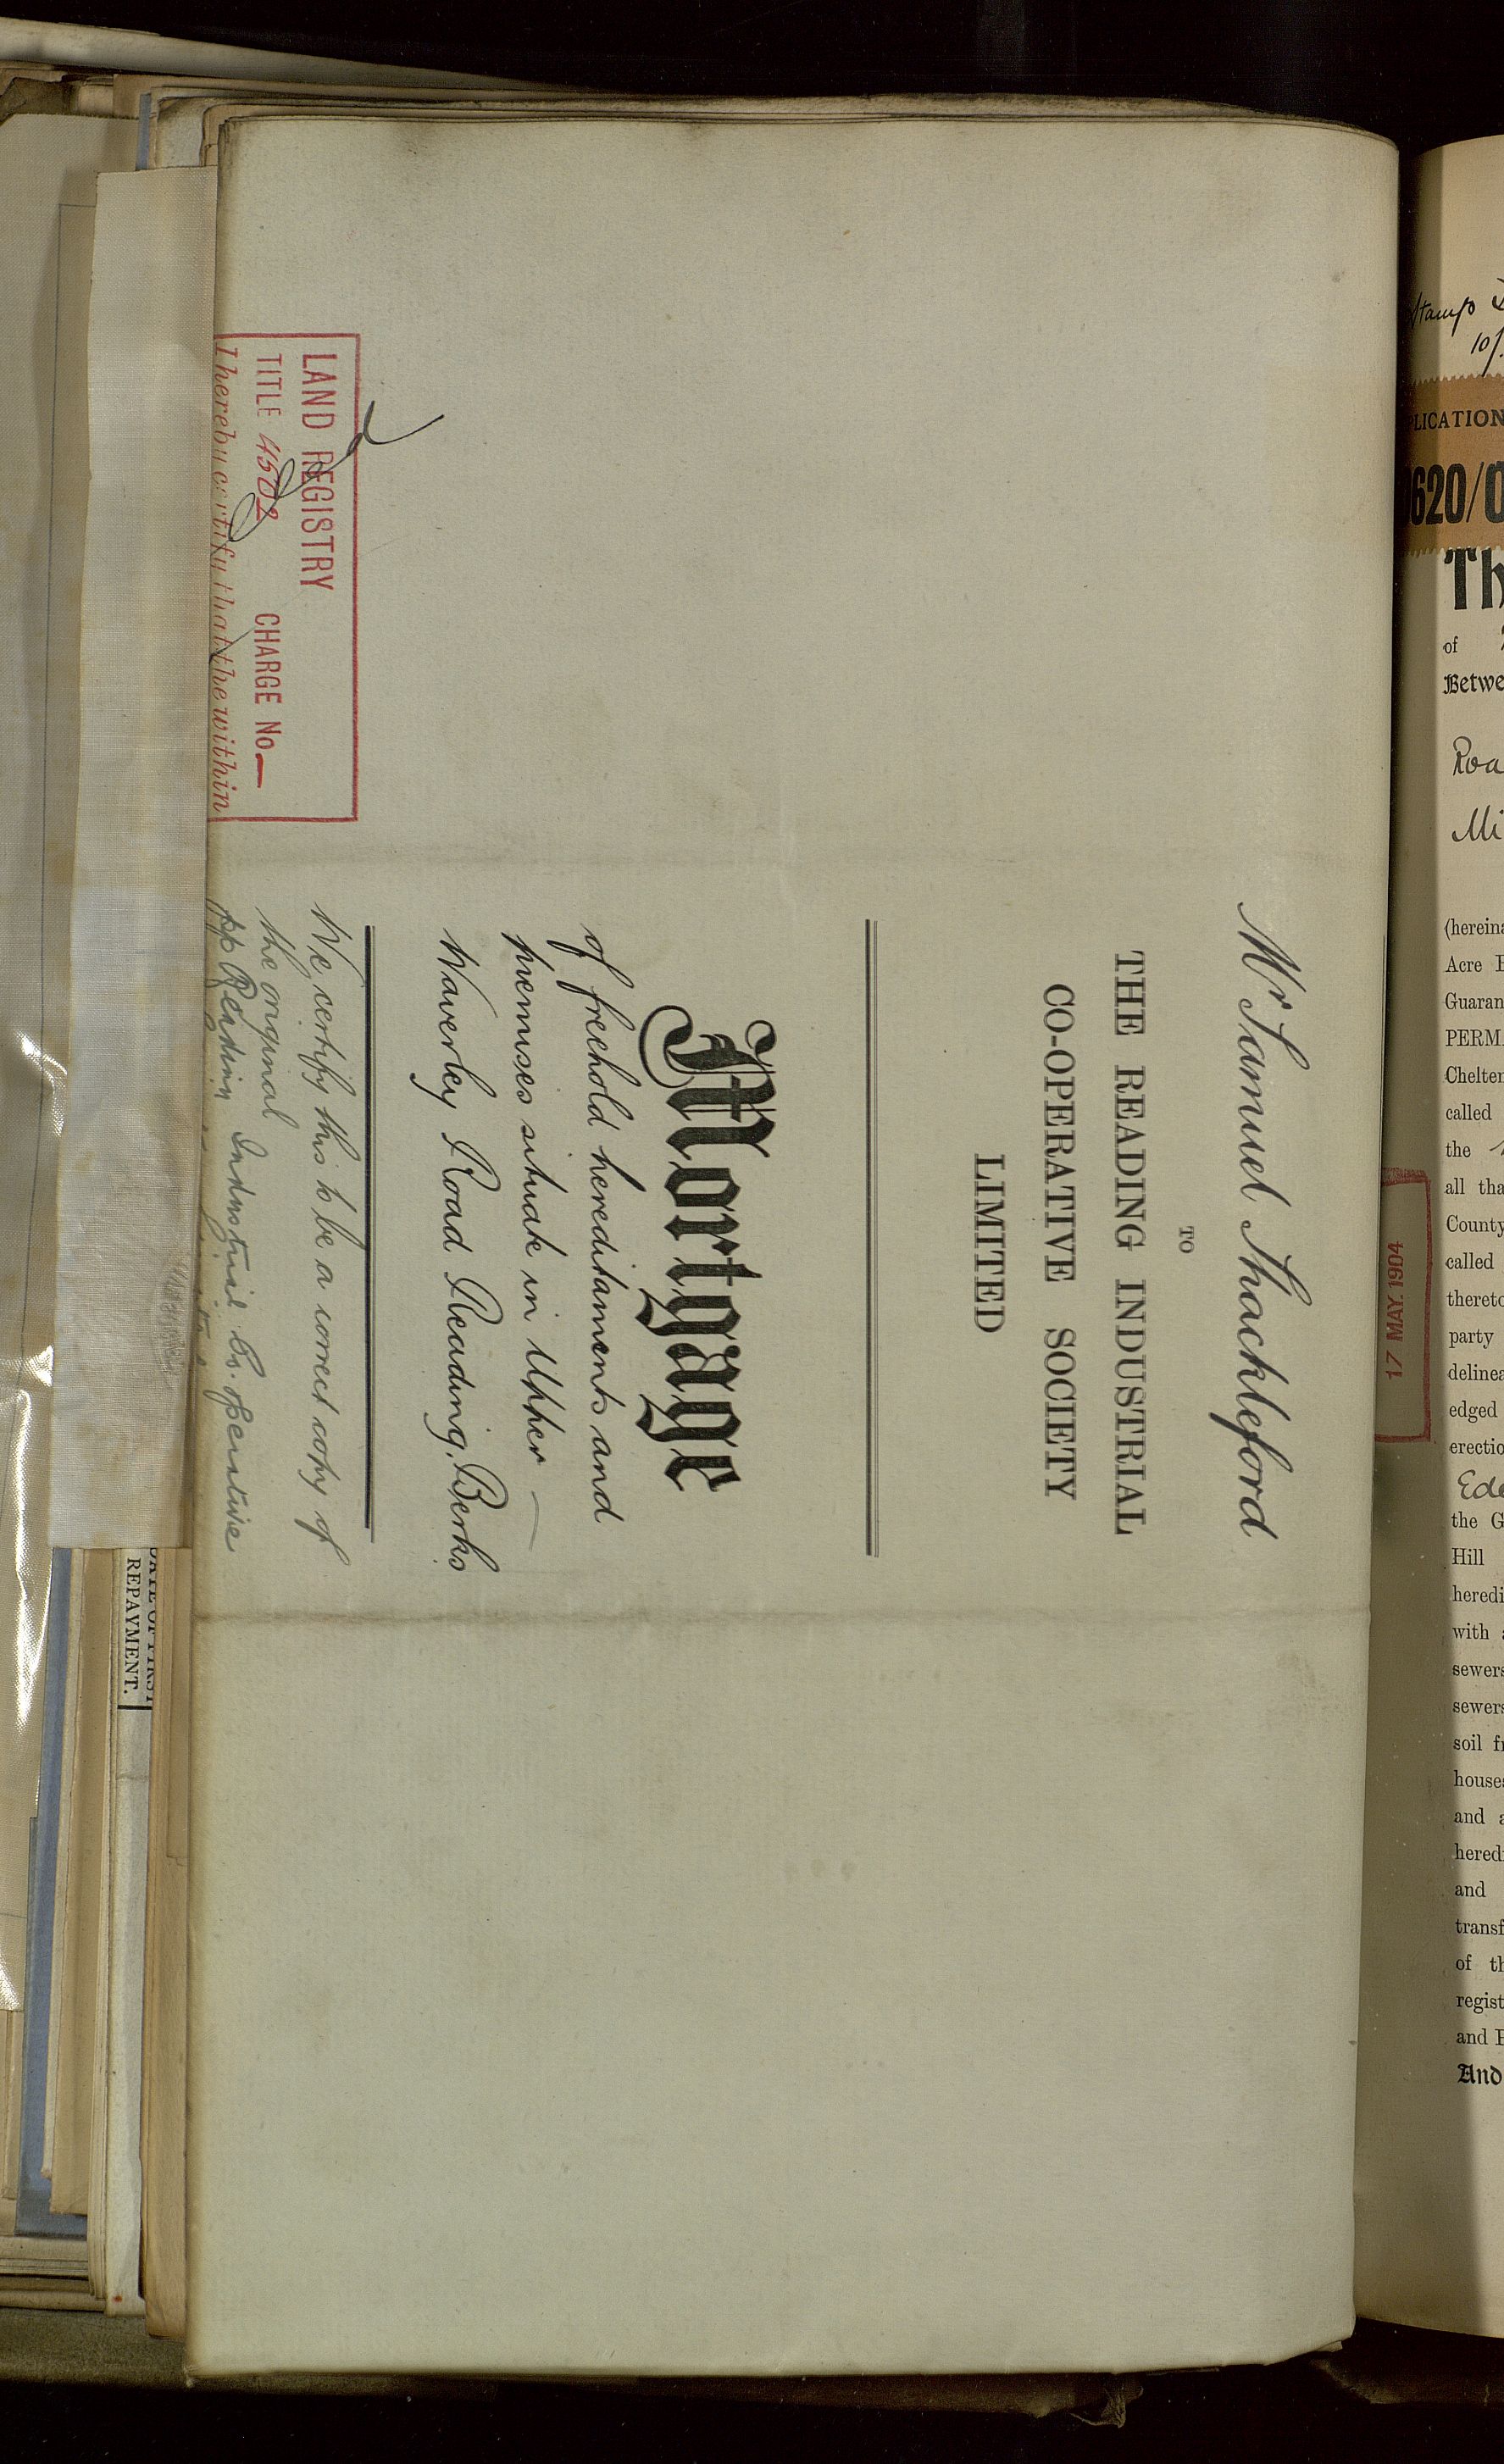 Mr Samuel Shackleford
TO
THE READING INDUSTRIAL
CO-OPERATIVE SOCIETY
LIMITED
Mortgage
of freehold hereditaments and
premises situate in Upper
Waverley Road Reading, Berks
We certify this to be a correct copy of
the original
pp Reading Industrial Co. operative
LAND REGISTRY
TITLE 4502 CHARGE No —
I hereby certify that the within
REPAYMENT.
Stamp
10/
PLICATION
620/0
Th
of
Betwe
Roa
Mi
(hereina
Acre
Guaran
PERMA
Chelten
called
the
all tha
County
called
thereto
party
delinea
edged
erectio
Ede
the G
Hill
heredi
with a
sewers
sewers
soil fr
houses
and a
heredi
and
transf
of th
regist
and
And
17 MAY. 1904